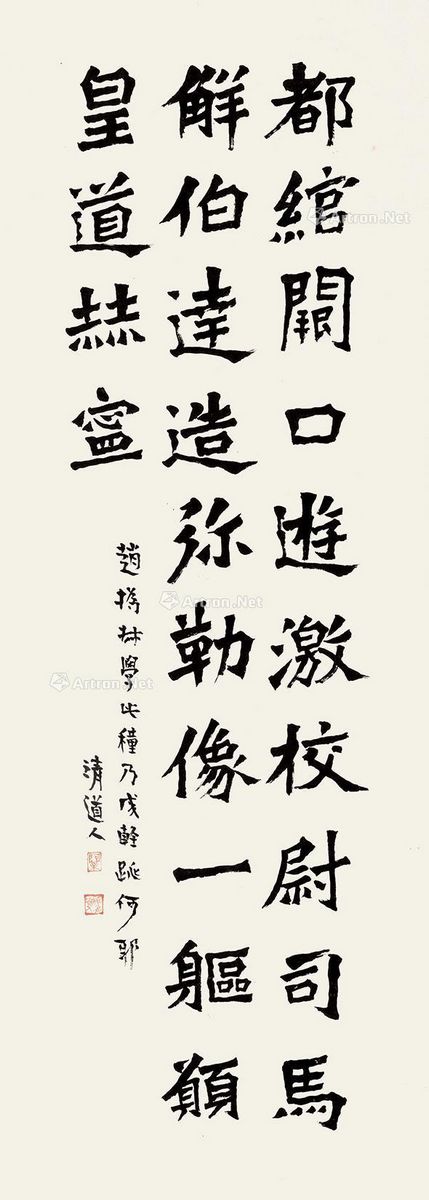 都綰闕口遊激校尉司馬
解伯達造弥勒像一軀願
皇道赫寧
趙撝叔學此種乃成輕跳何耶
清道人
Artron.Net
Artron.Net
Artron.Net